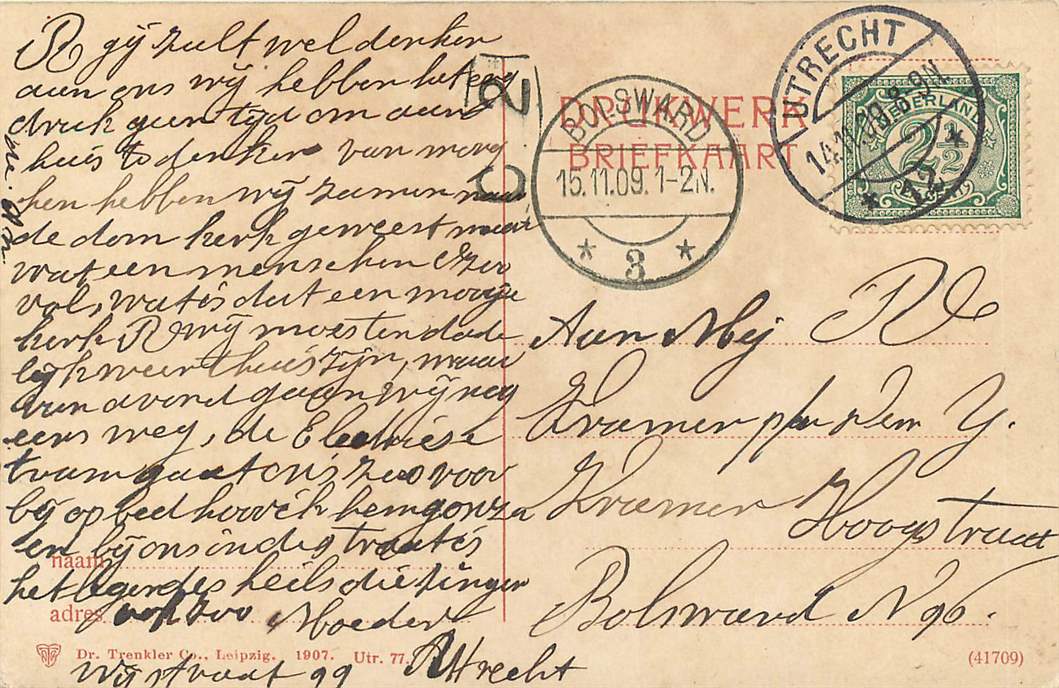 R gij zult wel denken
aan ons wij hebben het erg
druk geen tijd om aan
huis te denken van morg
hen hebben wij zamen naar
de dom kerk geweest maar
wat een menschen & zoo
vol, wat is dat een mooije
kerk R wij moesten dade
lijk weer thuis zijn, maar
van avond gaan wij nog
eens weg, de Electriese
tram gaat ons zoo voor
bij op bed hoor ik hem gonza
en bij ons in de straat is
het leger des heils die zingen
ook zoo Moeder
Wijstraat 99 Utrecht
C 2
DRUKWERK
BRIEFKAART
BOLSWARD
15.11.09. 1-2N.
* 3 *
UTRECHT
14.11.09 8-9N.
* 12 *
NEDERLAND
2½
CENT
Aan Mej R
Kramer p/a den Y.
Kramer
Hoogstraat
Bolsward N 96.
naam
adres
Dr. Trenkler Co., Leipzig. 1907. Utr. 77.
(41709)